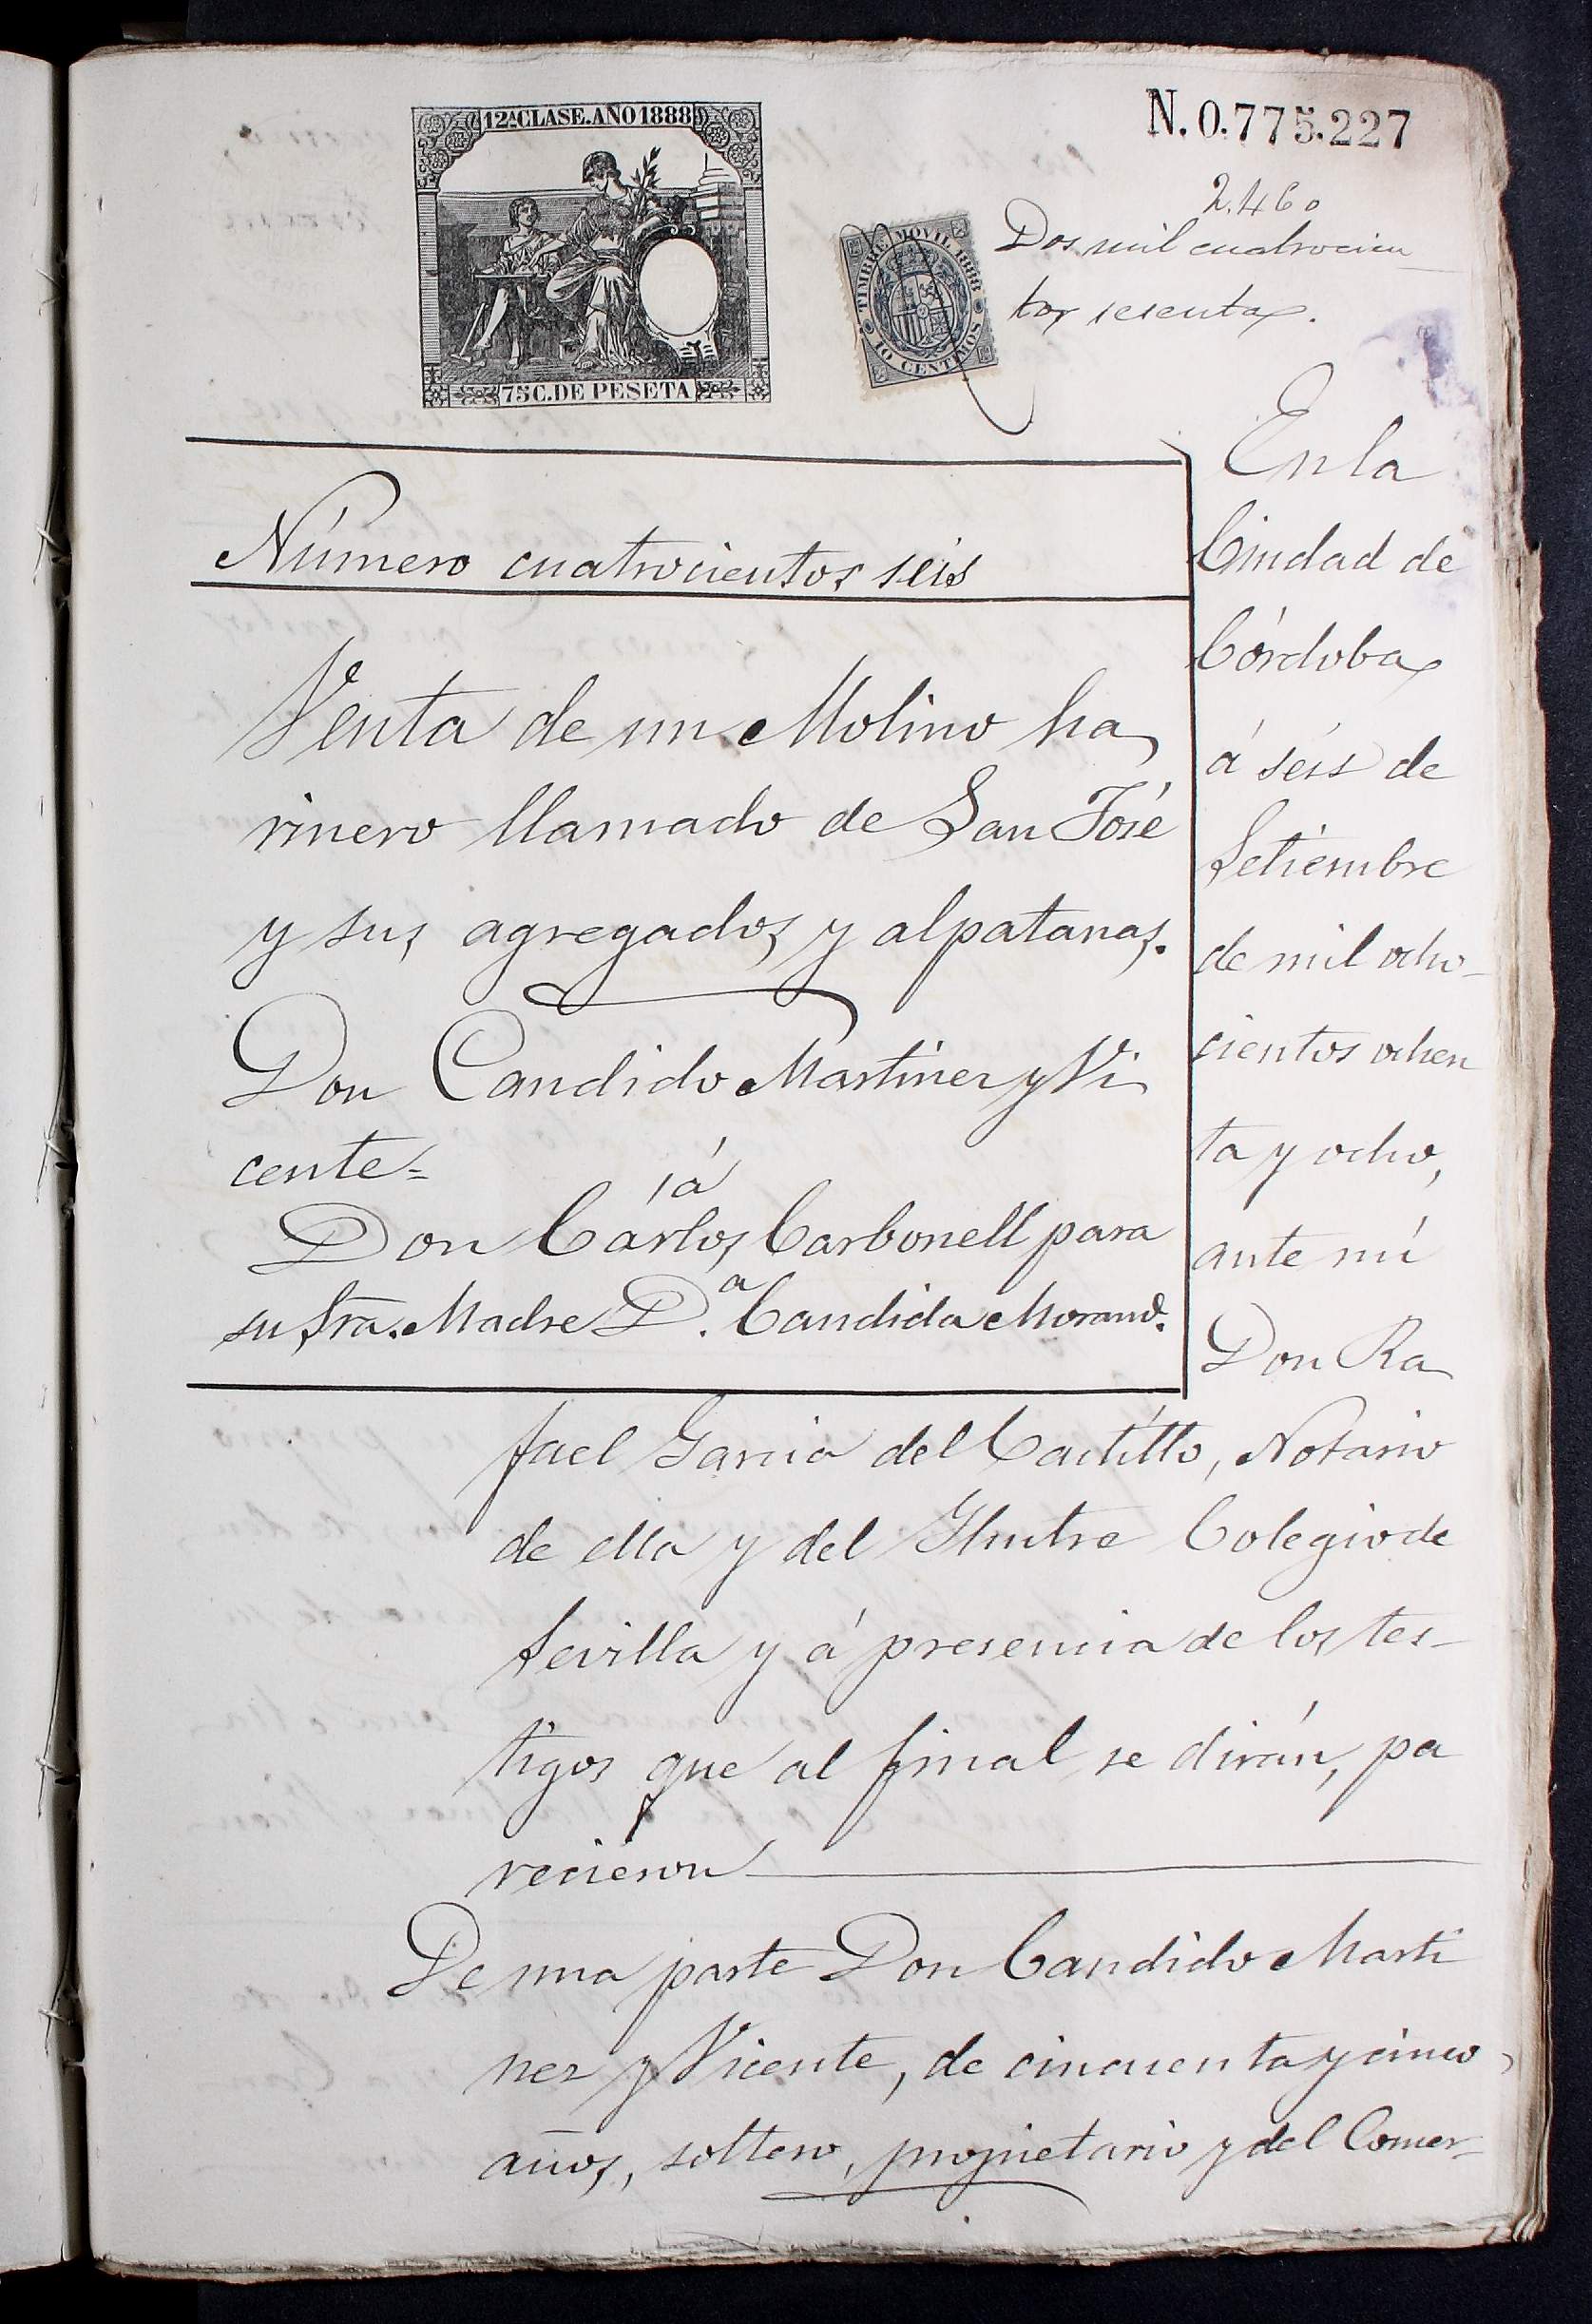 12ª CLASE. AÑO 1888
75 C. DE PESETA
N. 0.775.227
TIMBRE MOVIL 1888
10 CENTIMOS
2.460
Dos mil cuatrocien
tos sesenta.
Número cuatrocientos seis
Venta de un Molino ha
rinero llamado de San José
y sus agregados y alpatanas.
Don Candido Martinez y Vi
cente=
á
Don Cárlos Carbonell para
su Sra. Madre D.ª Candida Morand.
En la
Ciudad de
Córdoba
á seis de
Setiembre
de mil ocho-
cientos ochen
ta y ocho,
ante mí
Don Ra
fael Garcia del Castillo, Notario
de ella y del Ilustre Colegio de
Sevilla y á presencia de los tes-
tigos que al final se dirán, pa
recieron
De una parte Don Candido Marti
nez y Vicente, de cincuenta y cinco
años, soltero, propietario y del Comer-